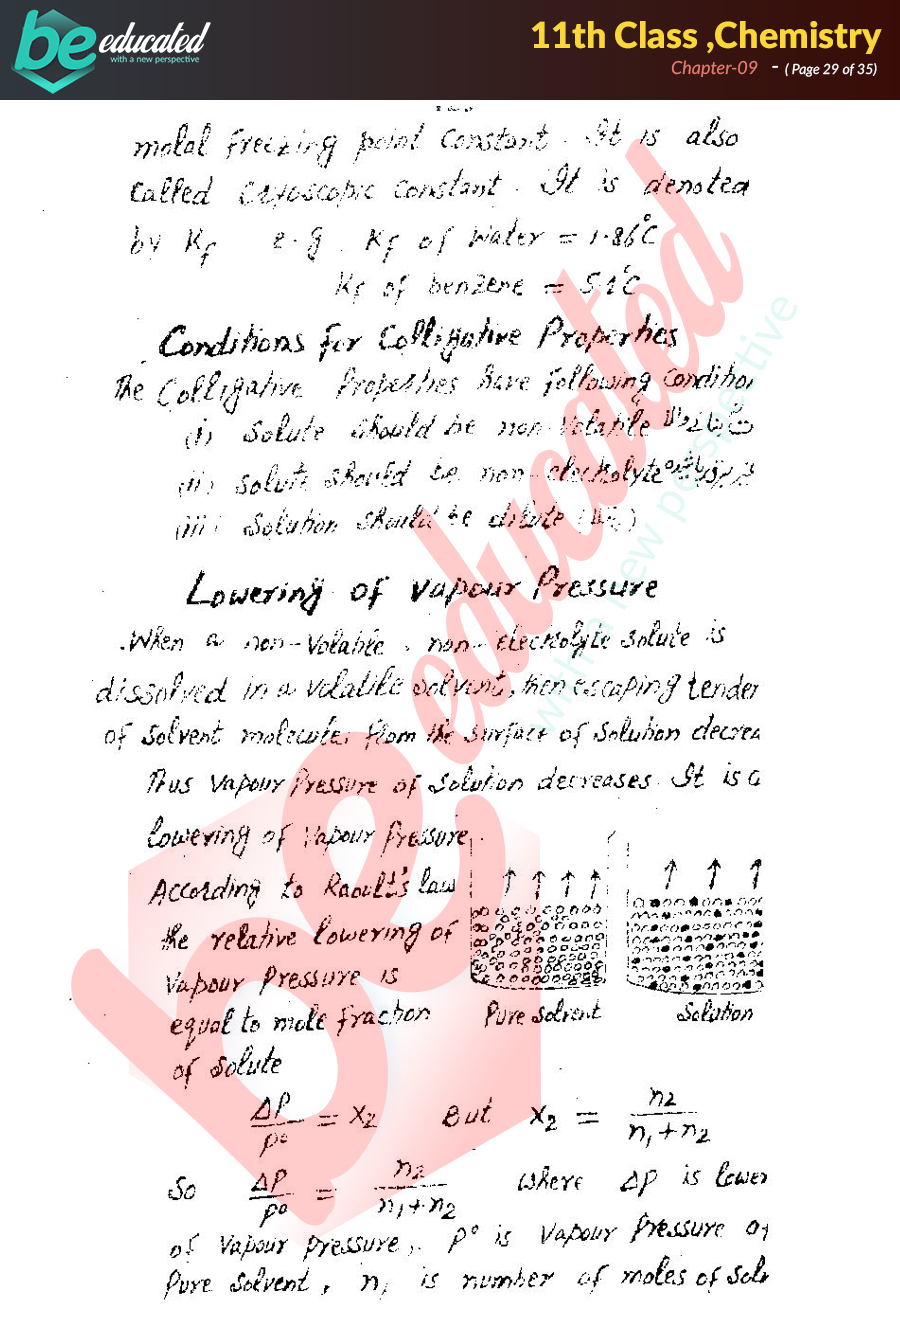 be educated
with a new perspective
11th Class ,Chemistry
Chapter-09 - ( Page 29 of 35)
molal freezing point constant. It is also
called cryoscopic constant. It is denoted
by Kf e.g. Kf of water = 1.86°C
Kf of benzene = 5.1°C
Conditions for Colligative Properties
The Colligative Properties have following condition
(i) Solute should be non-volatile
(ii) Solute should be non-electrolyte
(iii) Solution should be dilute
Lowering of vapour Pressure
.When a non-volatile, non-electrolyte solute is
dissolved in a volatile solvent, then escaping tender
of solvent molecules from the surface of solution decrea
Thus vapour pressure of solution decreases. It is c
lowering of vapour pressure.
According to Raoult's law
the relative lowering of
vapour pressure is
equal to mole fraction
of solute
Pure solvent Solution
ΔP/P° = X2 But X2 = n2/n1+n2
So ΔP/P° = n2/n1+n2 where ΔP is lower
of vapour pressure, P° is vapour pressure of
Pure solvent, n1 is number of moles of solv
be educated
with a new perspective